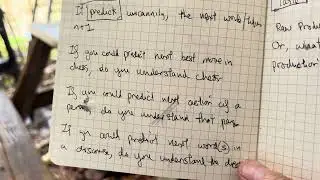 If predict uncannily, the next word/token
n+1.
If you could predict next best move in
chess, do you understand chess
If you could predict next action of a
person, do you understand that per
If you could predict next word(s) in
a discourse, do you understand the disc
Raw Produ
Or, what
production